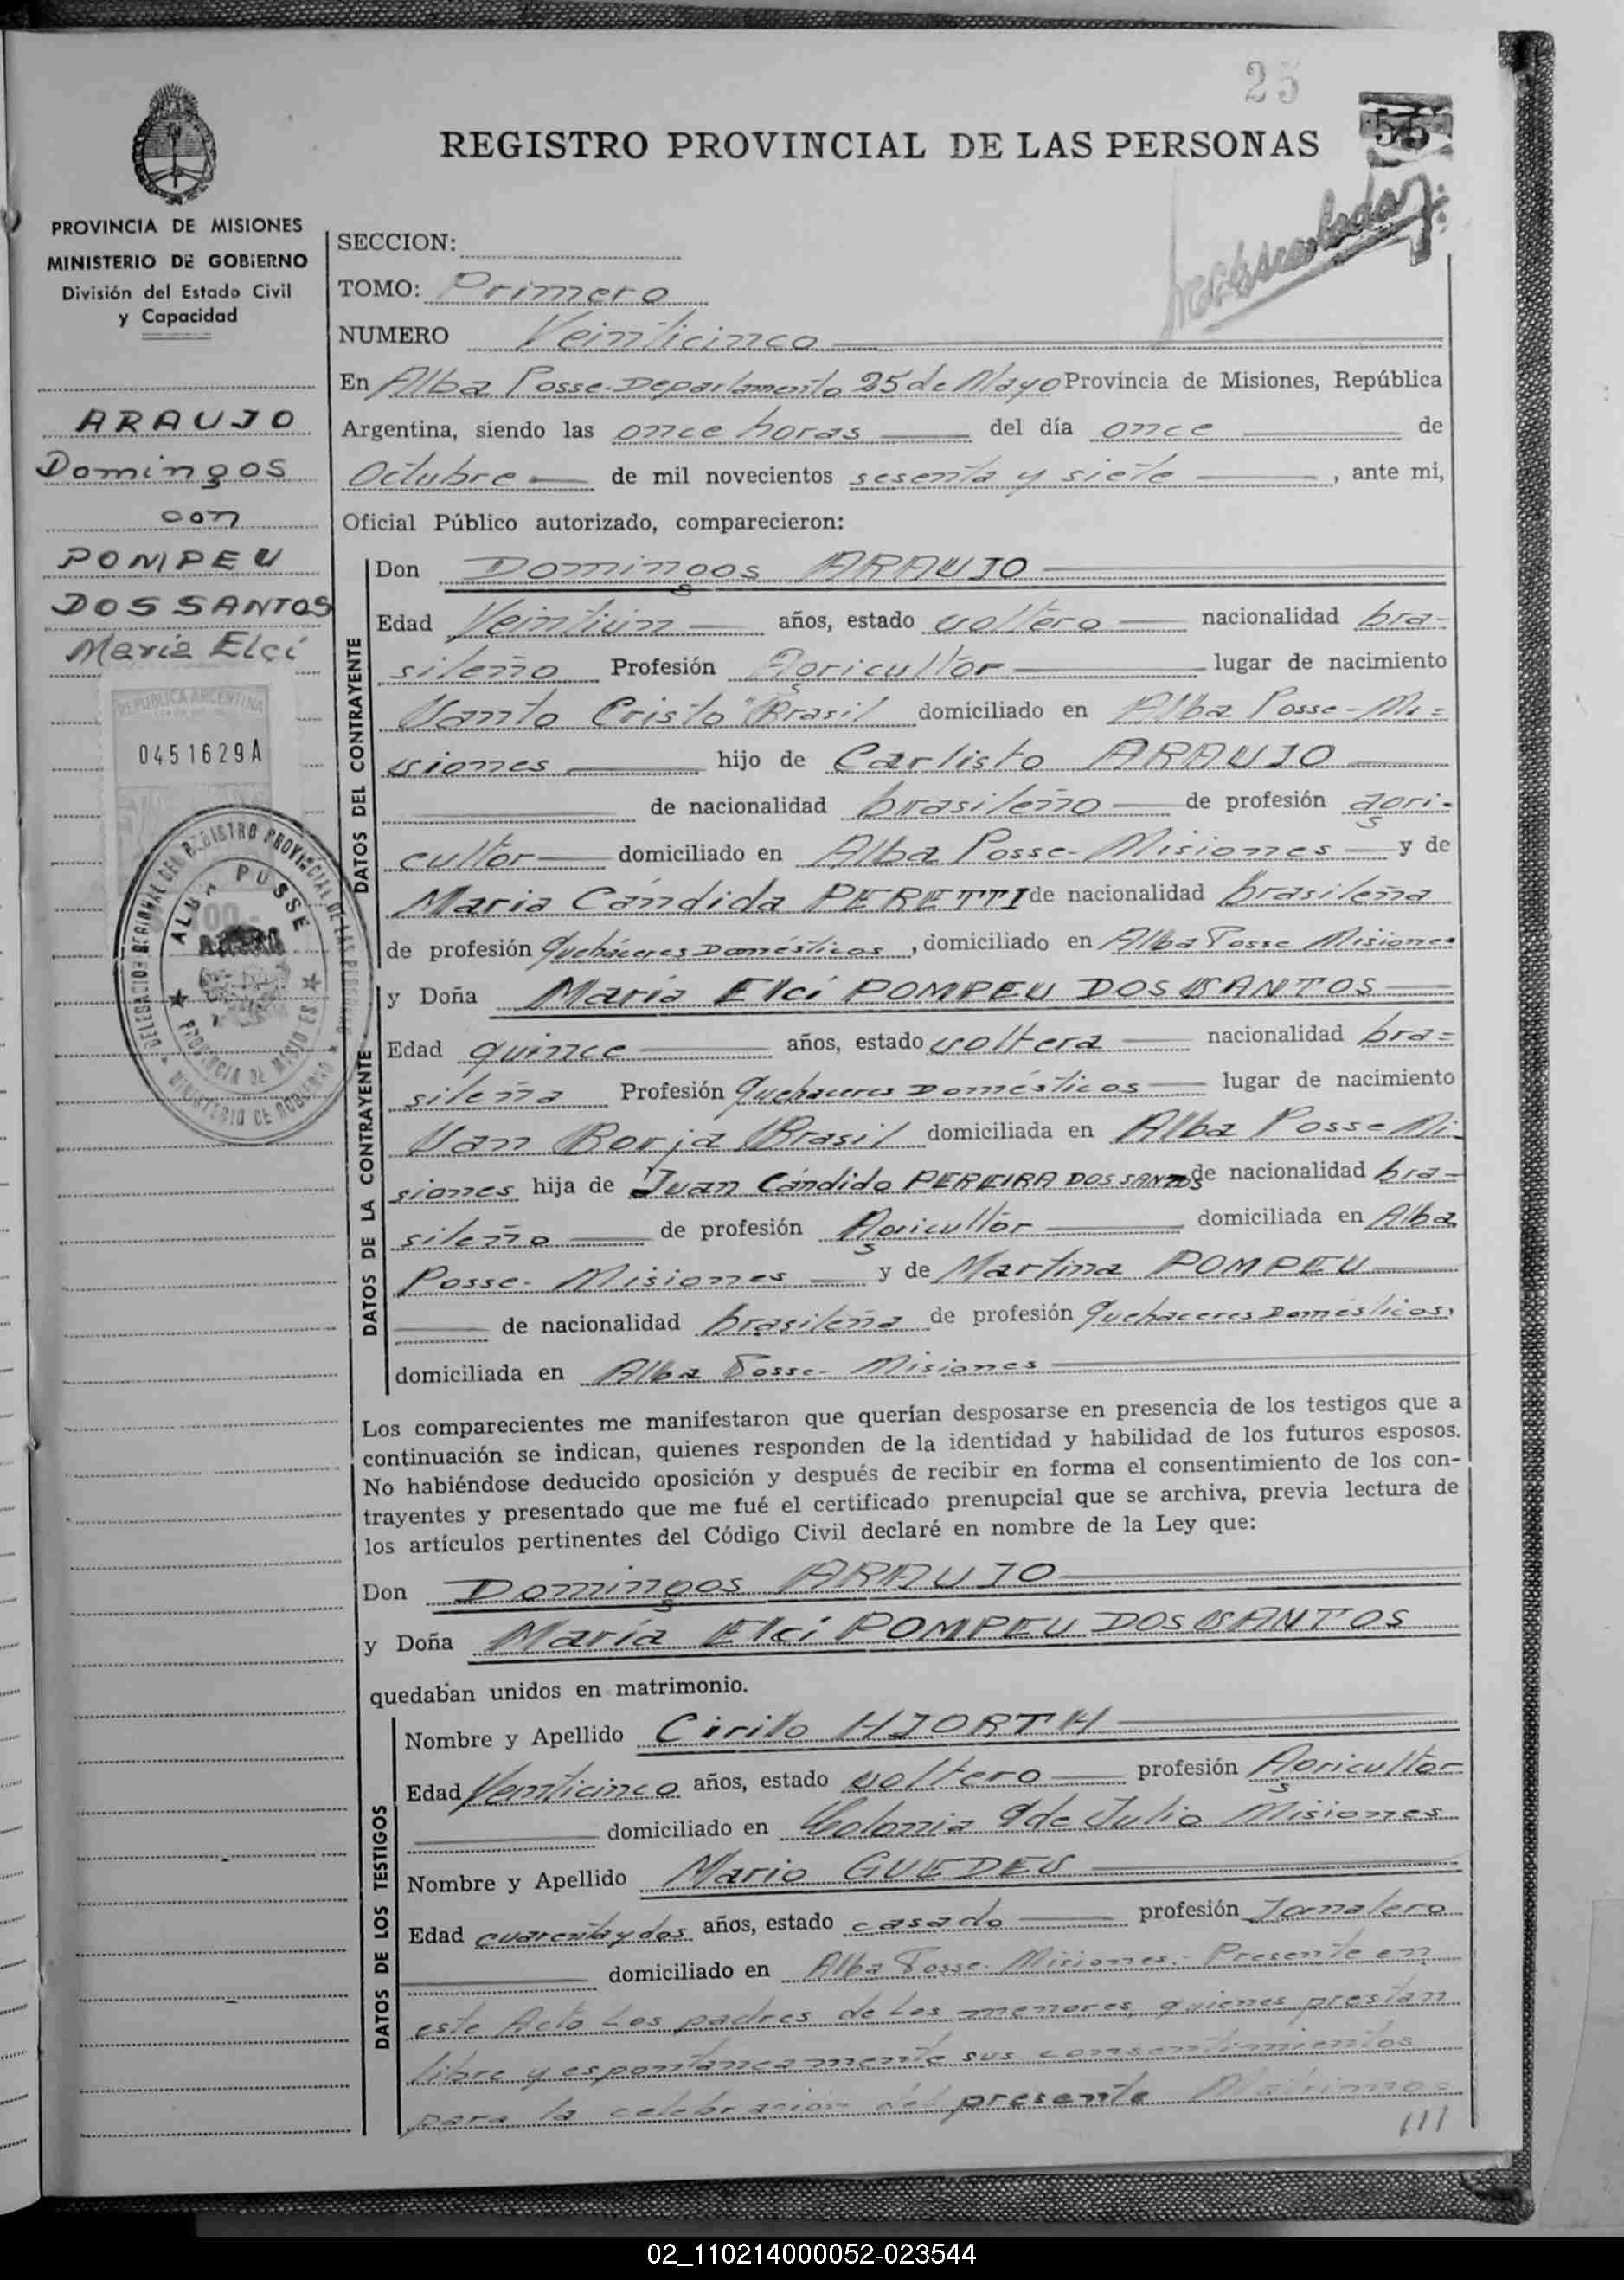 25
55
REGISTRO PROVINCIAL DE LAS PERSONAS
PROVINCIA DE MISIONES
MINISTERIO DE GOBIERNO
División del Estado Civil
y Capacidad
ARAUJO
Domingos
con
POMPEU
DOS SANTOS
María Elci
REPUBLICA ARGENTINA
0451629A
DELEGACION REGIONAL DEL REGISTRO PROVINCIAL DE LAS PERSONAS
ALBA POSSE
PROVINCIA DE MISIONES
MINISTERIO DE GOBIERNO
SECCION:
TOMO: Primero
NUMERO Veinticinco
En Alba Posse-Departamento 25 de Mayo Provincia de Misiones, República
Argentina, siendo las once horas del día once de
Octubre de mil novecientos sesenta y siete, ante mi,
Oficial Público autorizado, comparecieron:
DATOS DEL CONTRAYENTE
Don Domingos ARAUJO
Edad Veintiún años, estado soltero nacionalidad bra-
sileño Profesión Agricultor lugar de nacimiento
Santo Cristo "Brasil domiciliado en Alba Posse-Mi=
siones hijo de Carlisto ARAUJO
de nacionalidad brasileño de profesión agri-
cultor domiciliado en Alba Posse-Misiones y de
Maria Cándida PERETTI de nacionalidad brasileña
de profesión Quehaceres Domésticos, domiciliado en Alba Posse Misiones
DATOS DE LA CONTRAYENTE
y Doña María Elci POMPEU DOS SANTOS
Edad quince años, estado soltera nacionalidad bra=
sileña Profesión Quehaceres Domésticos lugar de nacimiento
San Borja Brasil domiciliada en Alba Posse Mi-
siones hija de Juan Cándido PEREIRA DOS SANTOS de nacionalidad bra-
sileño de profesión Agricultor domiciliada en Alba
Posse- Misiones y de Martina POMPEU
de nacionalidad brasileña de profesión Quehaceres Domésticos,
domiciliada en Alba Posse- Misiones
Los comparecientes me manifestaron que querían desposarse en presencia de los testigos que a
continuación se indican, quienes responden de la identidad y habilidad de los futuros esposos.
No habiéndose deducido oposición y después de recibir en forma el consentimiento de los con-
trayentes y presentado que me fué el certificado prenupcial que se archiva, previa lectura de
los artículos pertinentes del Código Civil declaré en nombre de la Ley que:
Don Domingos ARAUJO
y Doña María Elci POMPEU DOS SANTOS
quedaban unidos en matrimonio.
DATOS DE LOS TESTIGOS
Nombre y Apellido Cirilo HJORTH
Edad Veinticinco años, estado soltero profesión Agricultor
domiciliado en Colonia 9 de Julio Misiones
Nombre y Apellido Mario GUEDES
Edad cuarenta y dos años, estado casado profesión Jornalero
domiciliado en Alba Posse- Misiones.- Presente en
este Acto Los padres de Los menores, quienes prestan
libre y espontáneamente sus consentimientos
para la celebración del presente Matrimo=
///
02_110214000052-023544